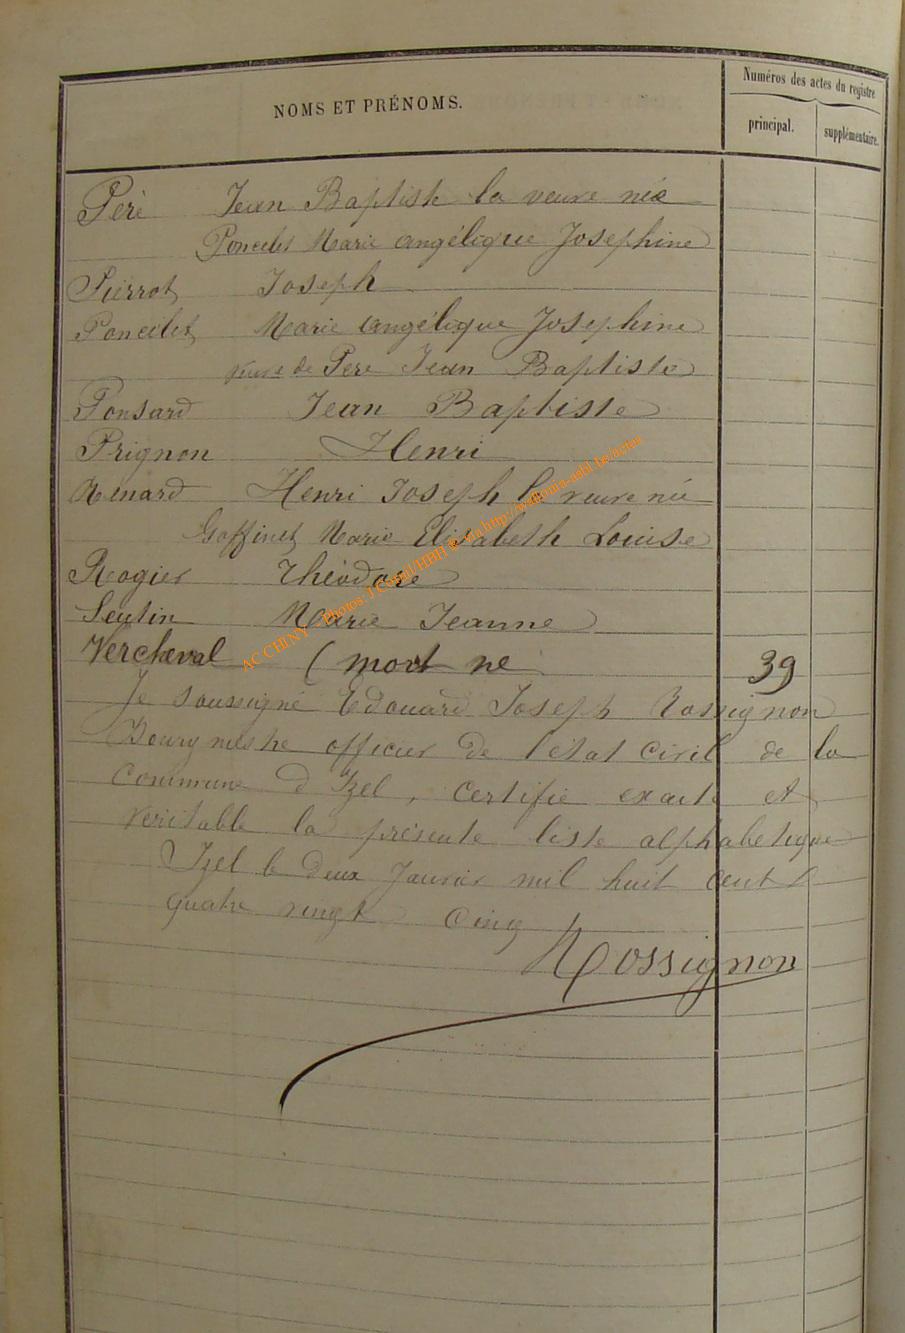 NOMS ET PRÉNOMS.
Numéros des actes du registre
principal.
supplémentaire.
Péré Jean Baptiste la veuve née
Poncelet Marie angélique Josephine
Pierrot Joseph
Poncelet Marie angélique Josephine
veuve de Pere Jean Baptiste
Ponsard Jean Baptiste
Prignon Henri
Renard Henri Joseph la veuve née
Goffinet Marie Elisabeth Louise
Rogier Théodore
Seutin Marie Jeanne
Vercheval (mort né 39
Je soussigné Edouard Joseph Rossignon
Bourgmestre officier de l'etat civil de la
Commune d'Izel, certifie exacte et
veritable la présente liste alphabetique
Izel le deux Janvier mil huit cent
quatre vingt cinq
Rossignon
AC CHINY - Photos: J.Comil/HBH © via http://wallonia-asbl.be/actes